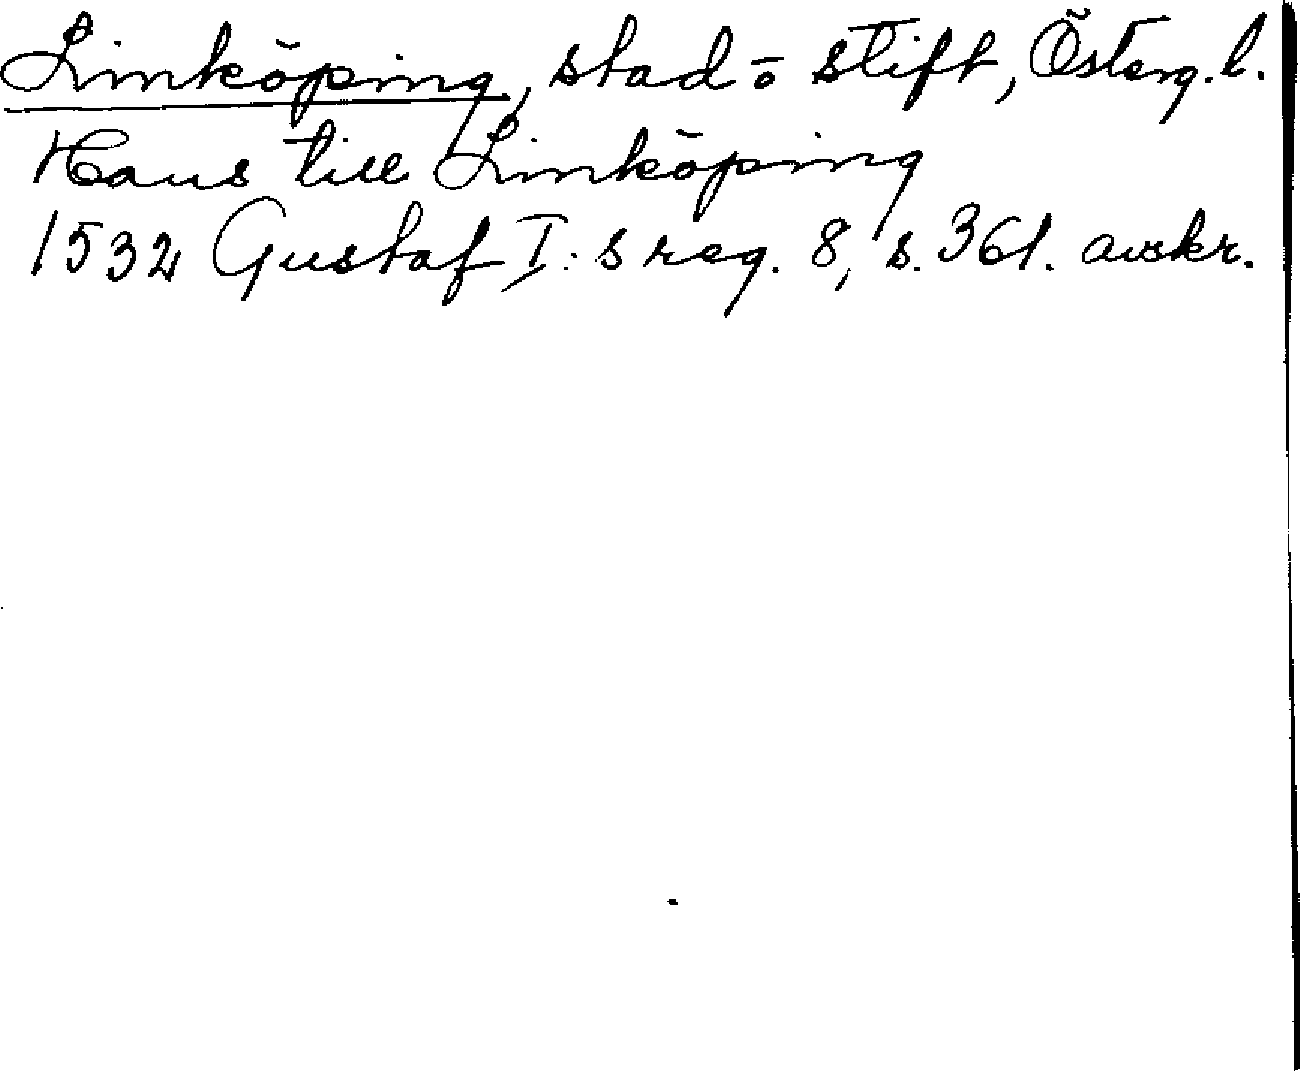 Linköping, stad o stift, Österg. l.
Hans till Linköping
1532 Gustaf I:s reg. 8, s. 361. avskr.